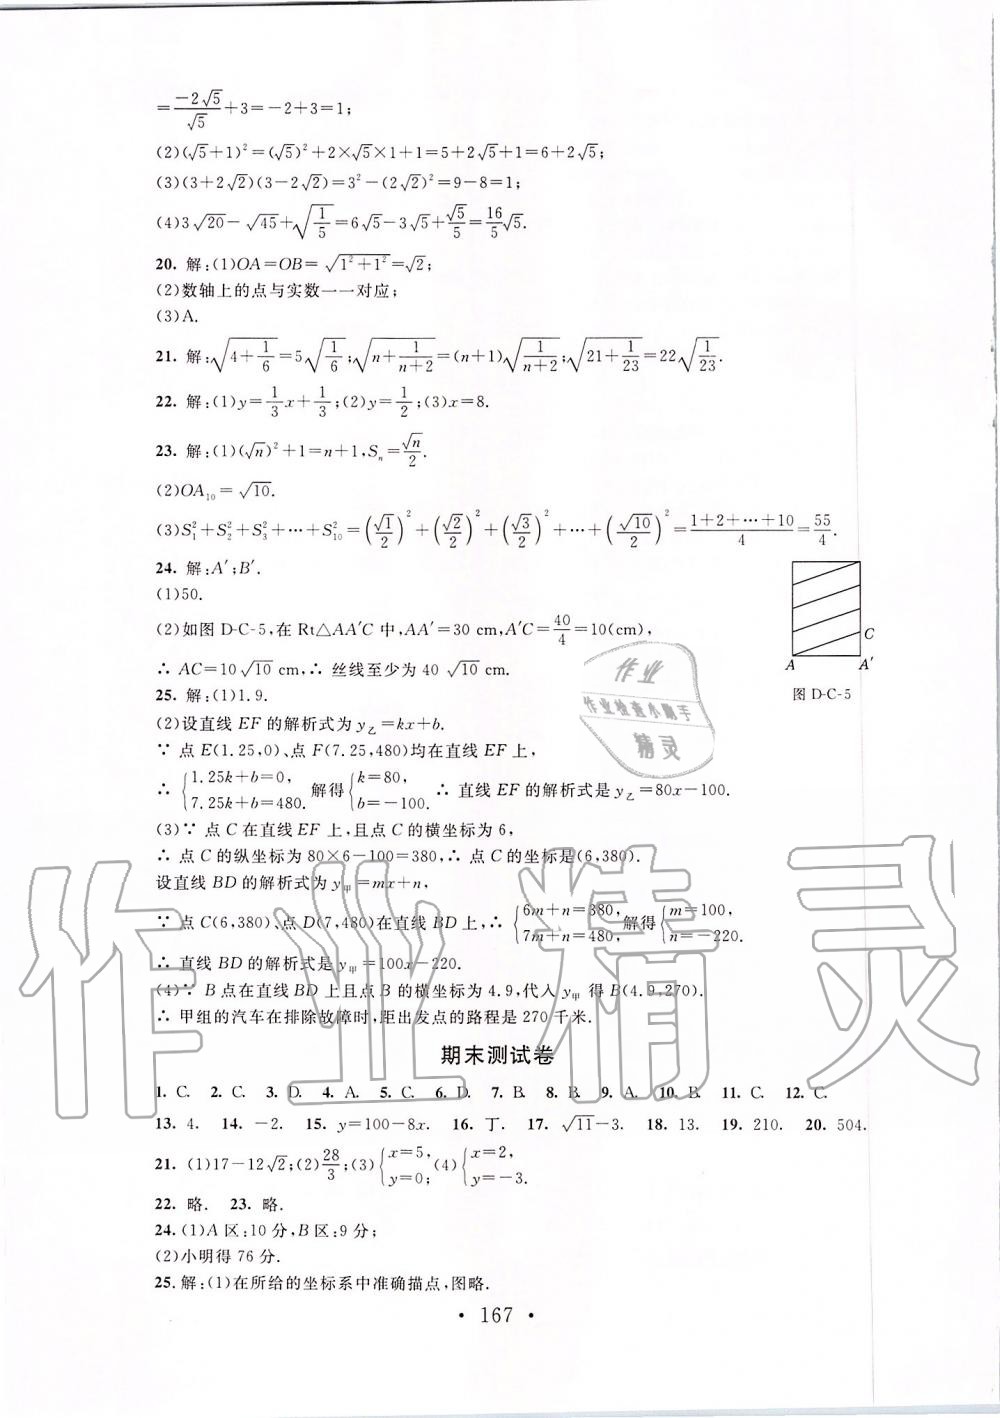 =\frac{-2√5}{√5}+3=-2+3=1;
(2)(√5+1)²=(√5)²+2×√5×1+1=5+2√5+1=6+2√5;
(3)(3+2√2)(3-2√2)=3²-(2√2)²=9-8=1;
(4)3√20-√45+√\frac{1}{5}=6√5-3√5+\frac{√5}{5}=\frac{16}{5}√5.
20. 解:(1)OA=OB=√(1²+1²)=√2;
(2)数轴上的点与实数一一对应;
(3)A.
21. 解:√(4+\frac{1}{6})=5√\frac{1}{6};√(n+\frac{1}{n+2})=(n+1)√\frac{1}{n+2};√(21+\frac{1}{23})=22√\frac{1}{23}.
22. 解:(1)y=\frac{1}{3}x+\frac{1}{3};(2)y=\frac{1}{2};(3)x=8.
23. 解:(1)(√n)²+1=n+1,Sₙ=\frac{√n}{2}.
(2)OA₁₀=√10.
(3)S₁²+S₂²+S₃²+…+S₁₀²=(\frac{√1}{2})²+(\frac{√2}{2})²+(\frac{√3}{2})²+…+(\frac{√10}{2})²=\frac{1+2+…+10}{4}=\frac{55}{4}.
24. 解:A′;B′.
(1)50.
(2)如图 D-C-5,在 Rt△AA′C 中,AA′=30 cm,A′C=\frac{40}{4}=10(cm),
∴ AC=10√10 cm,∴ 丝线至少为 40√10 cm.
C
A A′
图 D-C-5
25. 解:(1)1.9.
(2)设直线 EF 的解析式为 y乙=kx+b.
∵ 点 E(1.25,0)、点 F(7.25,480)均在直线 EF 上,
∴ {1.25k+b=0, 7.25k+b=480. 解得 {k=80, b=-100. ∴ 直线 EF 的解析式是 y乙=80x-100.
(3)∵ 点 C 在直线 EF 上,且点 C 的横坐标为 6,
∴ 点 C 的纵坐标为 80×6-100=380,∴ 点 C 的坐标是(6,380).
设直线 BD 的解析式为 y甲=mx+n,
∵ 点 C(6,380)、点 D(7,480)在直线 BD 上,∴ {6m+n=380, 7m+n=480, 解得 {m=100, n=-220.
∴ 直线 BD 的解析式是 y甲=100x-220.
(4)∵ B 点在直线 BD 上且点 B 的横坐标为 4.9,代入 y甲 得 B(4.9,270).
∴ 甲组的汽车在排除故障时,距出发点的路程是 270 千米.
期末测试卷
1. C. 2. C. 3. D. 4. A. 5. C. 6. D. 7. B. 8. B. 9. A. 10. B. 11. C. 12. C.
13. 4. 14. -2. 15. y=100-8x. 16. 丁. 17. √11-3. 18. 13. 19. 210. 20. 504.
21. (1)17-12√2;(2)\frac{28}{3};(3){x=5, y=0; (4){x=2, y=-3.
22. 略. 23. 略.
24. (1)A 区:10 分,B 区:9 分;
(2)小明得 76 分.
25. 解:(1)在所给的坐标系中准确描点,图略.
• 167 •
作业
作业检查小助手
精灵
作业精灵